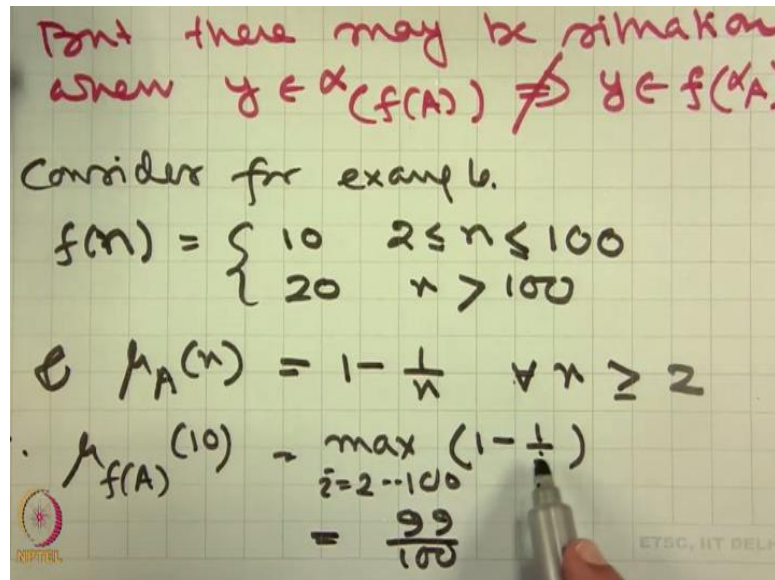 But there may be situation
when y ∈ α(f(A)) ⇏ y ∈ f(αA)
Consider for example.
f(n) = { 10 2 ≤ n ≤ 100
20 n > 100
& μA(n) = 1 - 1/n ∀ n ≥ 2
∴ μf(A)(10) = max (1 - 1/i)
i=2--100
= 99/100
NPTEL
ETSC, IIT DELH